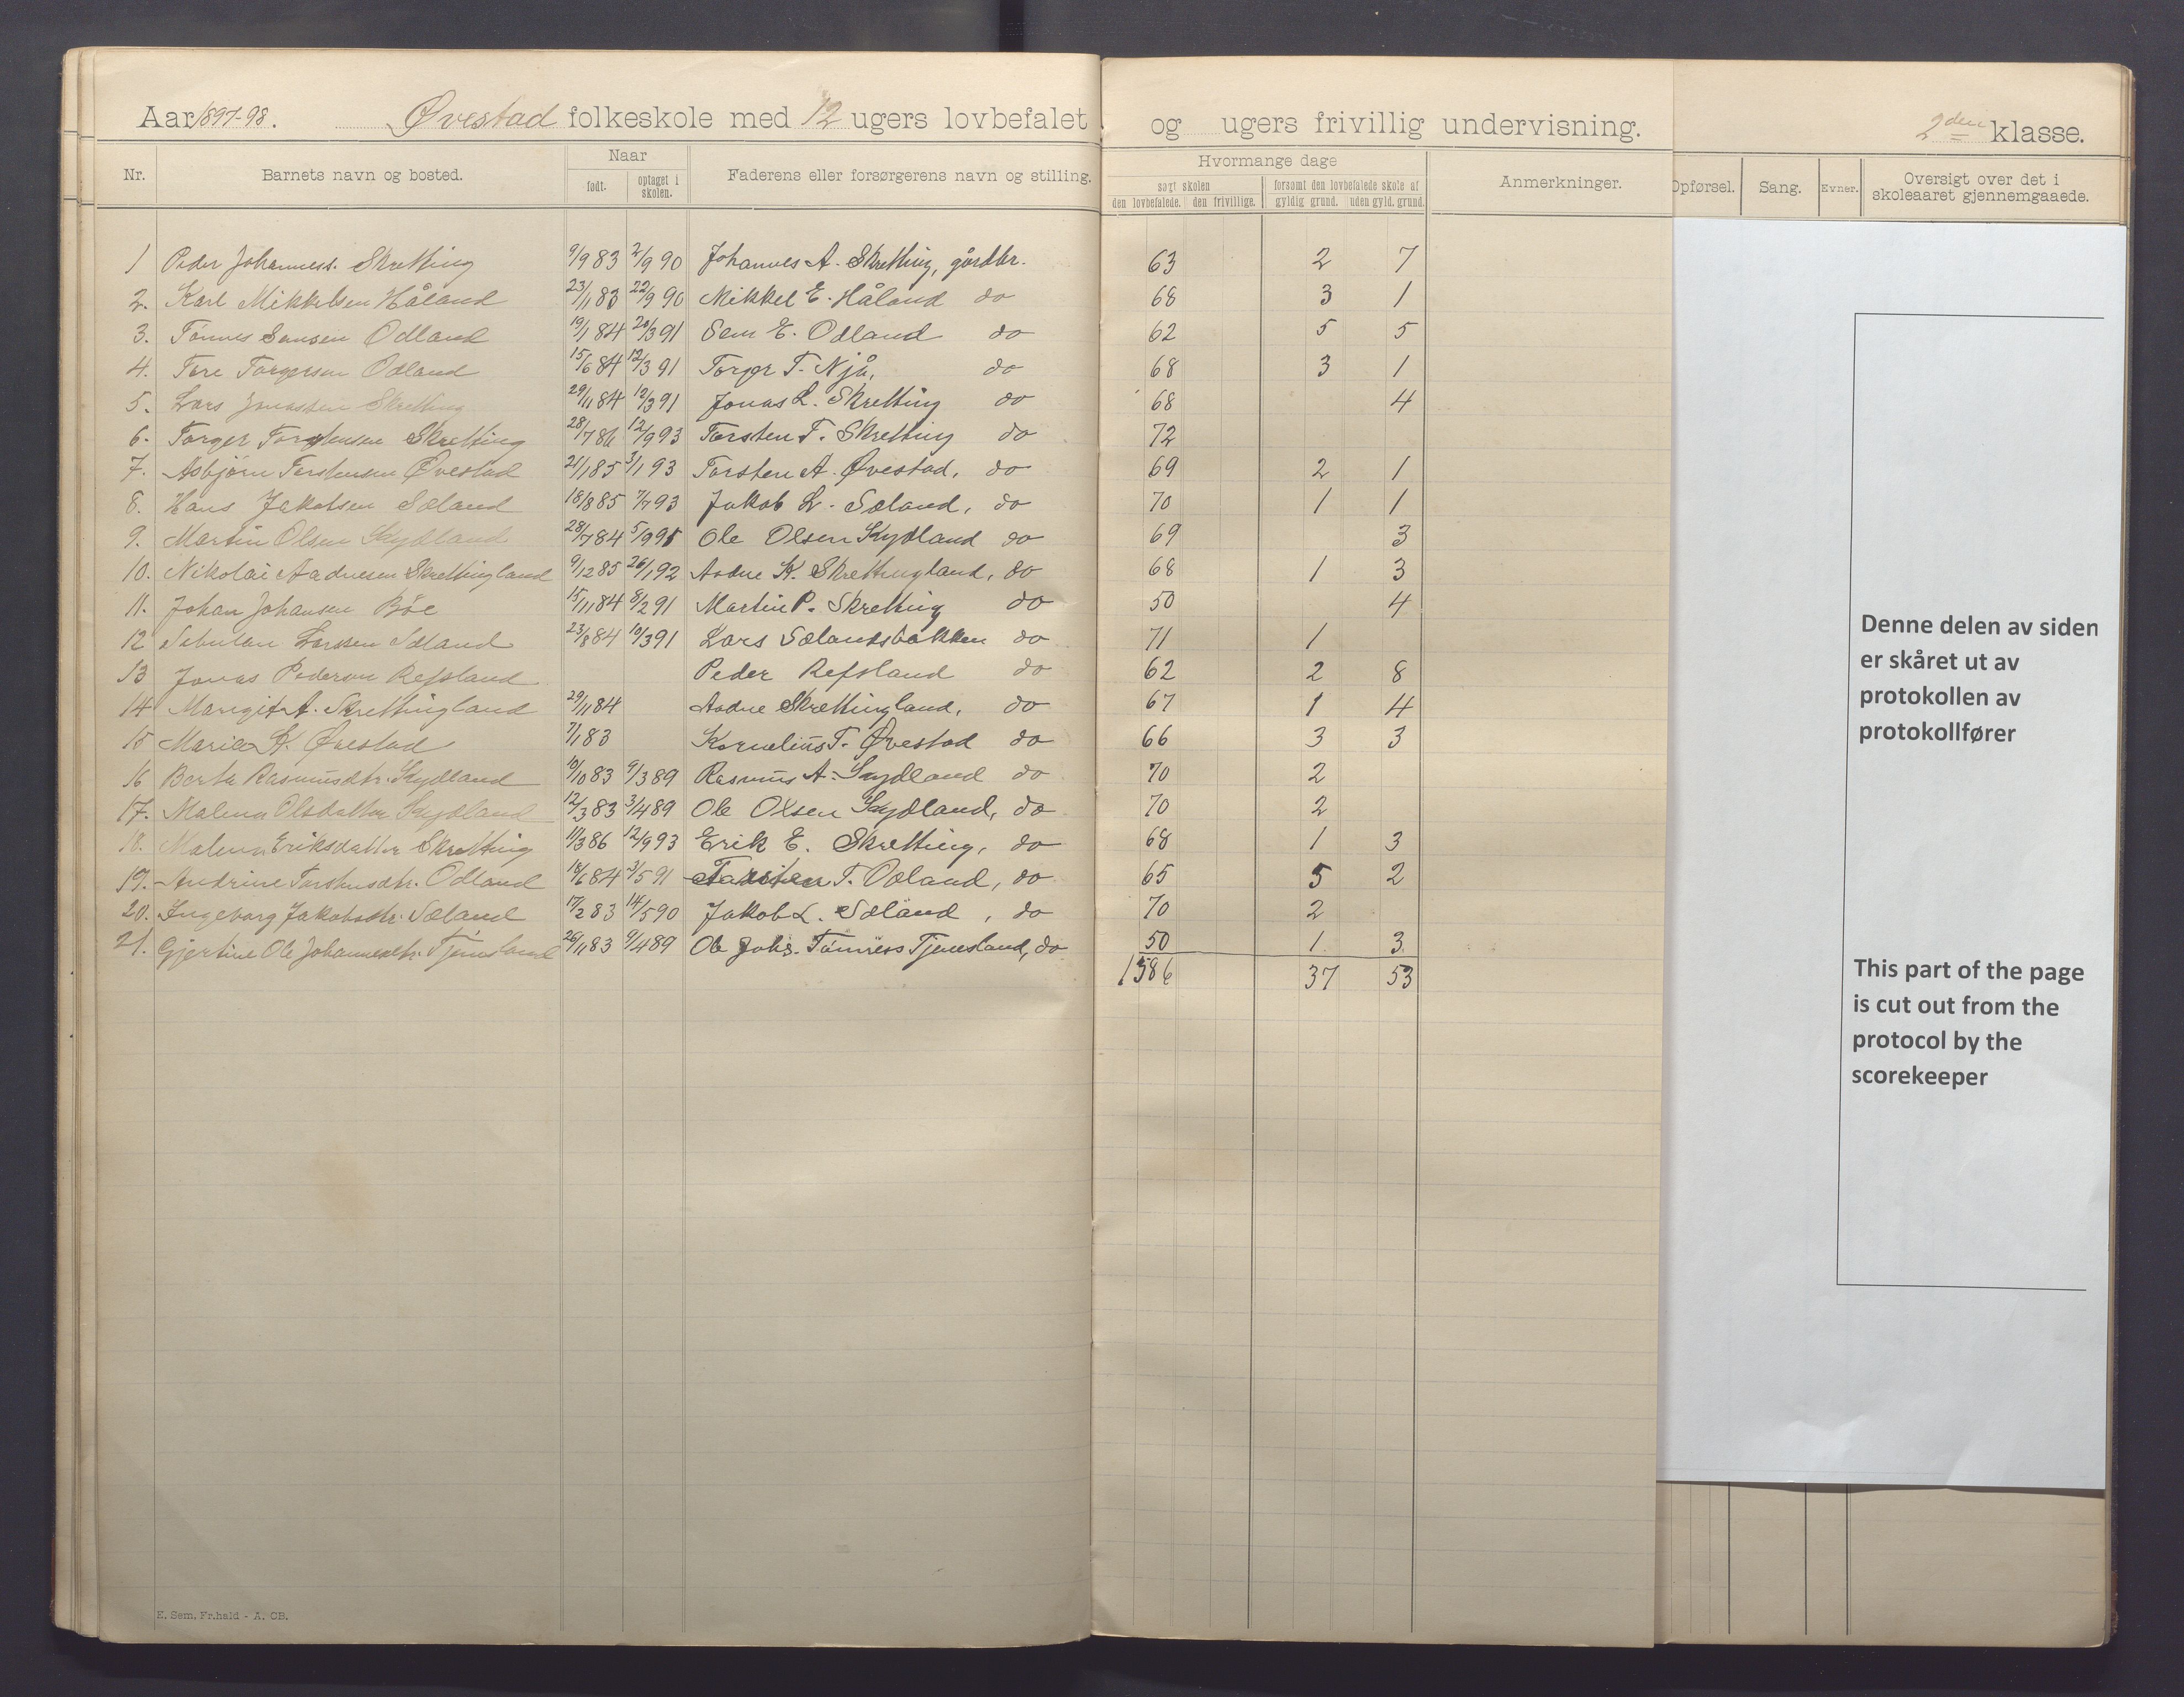 Aar 1897-98. Øvestad folkeskole med 12 ugers lovbefalet og ugers frivillig undervisning. 2den klasse.
Nr. Barnets navn og bosted. Naar født. optaget i skolen. Faderens eller forsørgerens navn og stilling. Hvormange dage søgt skolen den lovbefalede. den frivillige. forsømt den lovbefalede skole af gyldig grund. uden gyld. grund. Anmerkninger. Opførsel. Sang. Evner. Oversigt over det i skoleaaret gjennemgaaede.
1 Peder Johanness. Skretting 9/9 83 2/9 90 Johannes A. Skretting, gårdbr. 63 2 7
2. Karl Mikkelsen Håland 23/11 83 22/9 90 Mikkel E. Håland do 68 3 1
3. Tønnes Semsen Odland 19/1 84 20/3 91 Sem E. Odland do 62 5 5
4. Tore Torgersen Odland 15/6 84 12/3 91 Torger T. Njå, do 68 3 1
5. Lars Jonassen Skretting 29/11 84 12/3 91 Jonas L. Skretting do 68 4
6. Torger Torstensen Skretting 28/7 86 12/9 93 Torsten T. Skretting do 72
7. Asbjørn Torstensen Øvestad 21/1 85 3/1 93 Torsten A. Øvestad, do 69 2 1
8. Hans Jakobsen Sæland 18/8 85 7/7 93 Jakob L. Sæland, do 70 1 1
9. Martin Olsen Lydland 28/7 84 5/9 95 Ole Olsen Lydland do 69 3
10. Nikolai Aadnesen Skrettingland 9/12 85 26/1 92 Aadne K. Skrettingland, do 68 1 3
11. Johan Johansen Bøe 15/11 84 8/2 91 Martin P. Skretting do 50 4
12 Sebulon Larssen Sæland 23/8 84 10/3 91 Lars Sælandsbakken do 71 1
13 Jonas Pedersen Refsland Peder Refsland do 62 2 8
14 Margit A. Skrettingland 29/11 84 Aadne Skrettingland, do 67 1 4
15 Maria K. Øvestad 7/1 83 Kornelius T. Øvestad do 66 3 3
16 Berta Rasmusdtr. Lydland 10/10 83 9/3 89 Rasmus A. Lydland do 70 2
17. Malena Olsdatter Lydland 12/3 83 3/4 89 Ole Olsen Lydland, do 70 2
18. Malena Eriksdatter Skretting 11/3 86 12/9 93 Erik E. Skretting, do 68 1 3
19. Andrine Torstensdtr. Odland 18/6 84 3/5 91 Torsten T. Odland, do 65 5 2
20. Ingeborg Jakobsdtr. Sæland 17/2 83 14/5 90 Jakob L. Sæland, do 70 2
21. Gjertine Ole Johannesdtr. Tjemsland 26/11 83 9/4 89 Ole Johs. Tønness Tjemsland, do 50 1 3
1386 37 53
Denne delen av siden
er skåret ut av
protokollen av
protokollfører
This part of the page
is cut out from the
protocol by the
scorekeeper
E. Sem, Fr.hald - A. CB.